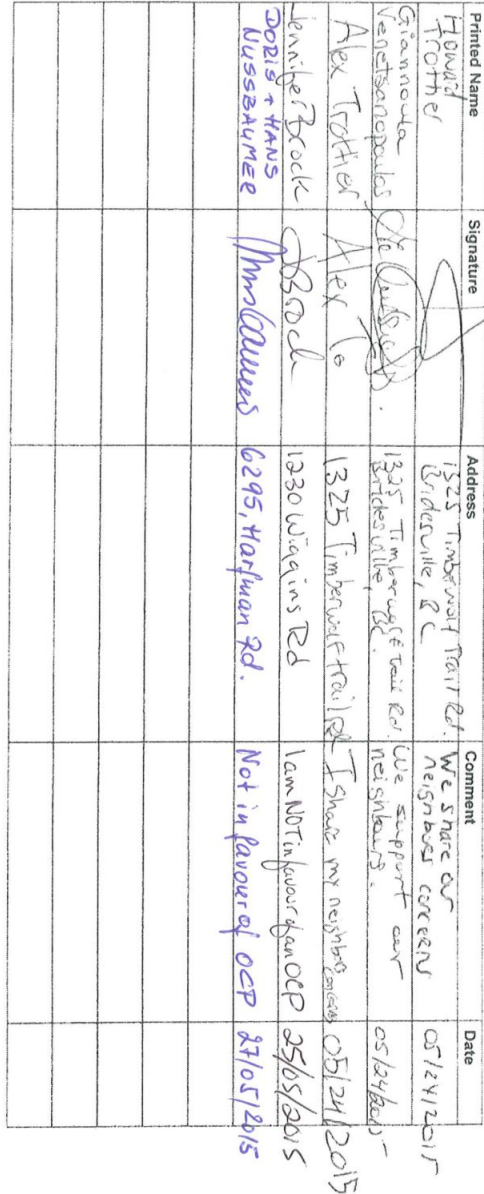 Printed Name Signature Address Comment Date
Howard
Trotter
1325 Timberwolf Trail Rd.
Bridesville, BC
We share our
neighbours concerns
05/24/2015
Giannoula
Venetsanopoulos
1325 Timberwolf Trail Rd.
Bridesville, BC.
We support our
neighbours.
05/24/2015
Alex Trotter Alex To 1325 Timberwolf trail rd I Share my neighbors concerns 05/24/2015
Jennifer Brock JBrock 1230 Wiggins Rd I am NOT in favour of an OCP 25/05/2015
DORIS + HANS
NUSSBAUMER
6295, Hartman Rd. Not in favour of OCP 27/05/2015